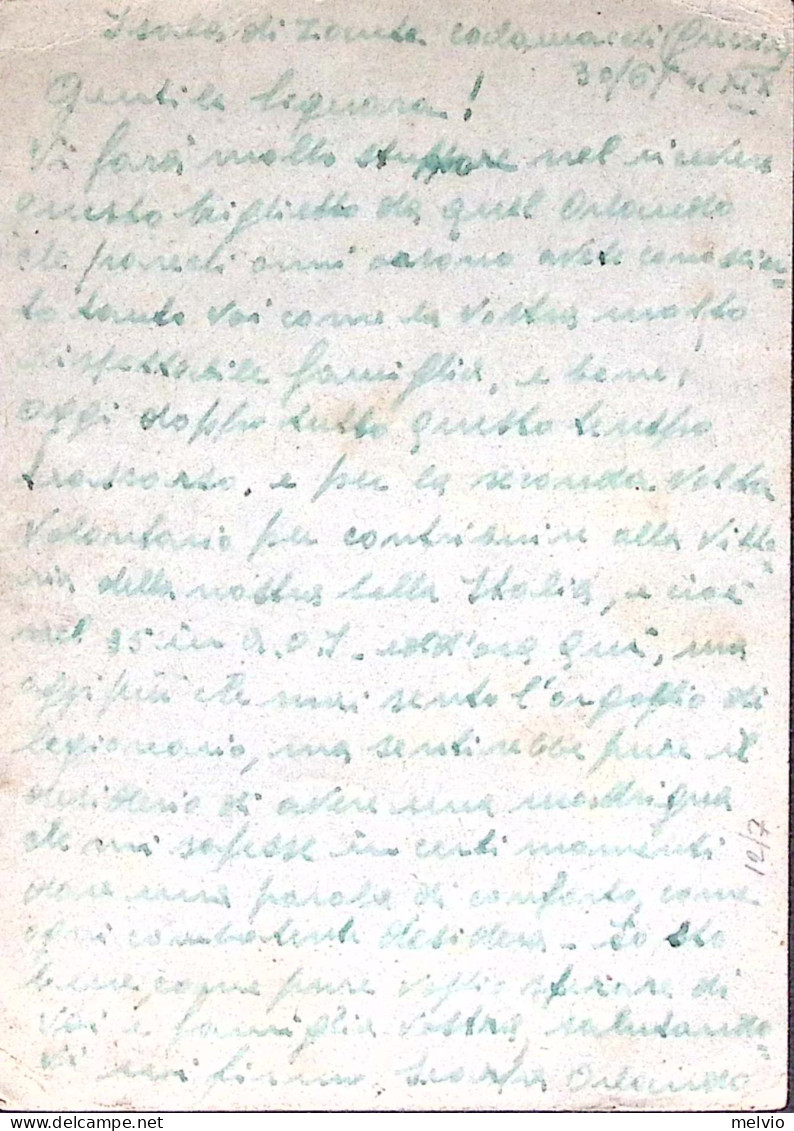 Isola di Zanta (Grecia)
30/6/ XIX
Gentile Signora!
Vi farà molto stuppore nel ricevere
questo biglietto da quel Orlando
che parechi anni or sono vi conosciu=
to tanto Voi come la vostra molto
rispettabile famiglia, e bene,
oggi doppo tutto questo tempo
trascorso, e per la seconda volta
volontario per contribuire alla vitto
ria della nostra bella Italia, e cioè
nel 35 in A.O.I. edd'ora qui, ma
oggi più che mai sento l'orgoglio di
legionario, ma sentirebbe pure il
desiderio di avere una madrigna
che mi sapesse in certi momenti
dare una parola di conforto come
ogni combatente desidera - Io sto
bene come pure voglio sperare di
Voi e famiglia vostra, salutando=
Vi mi firmo, Orlando
12/7
melvio